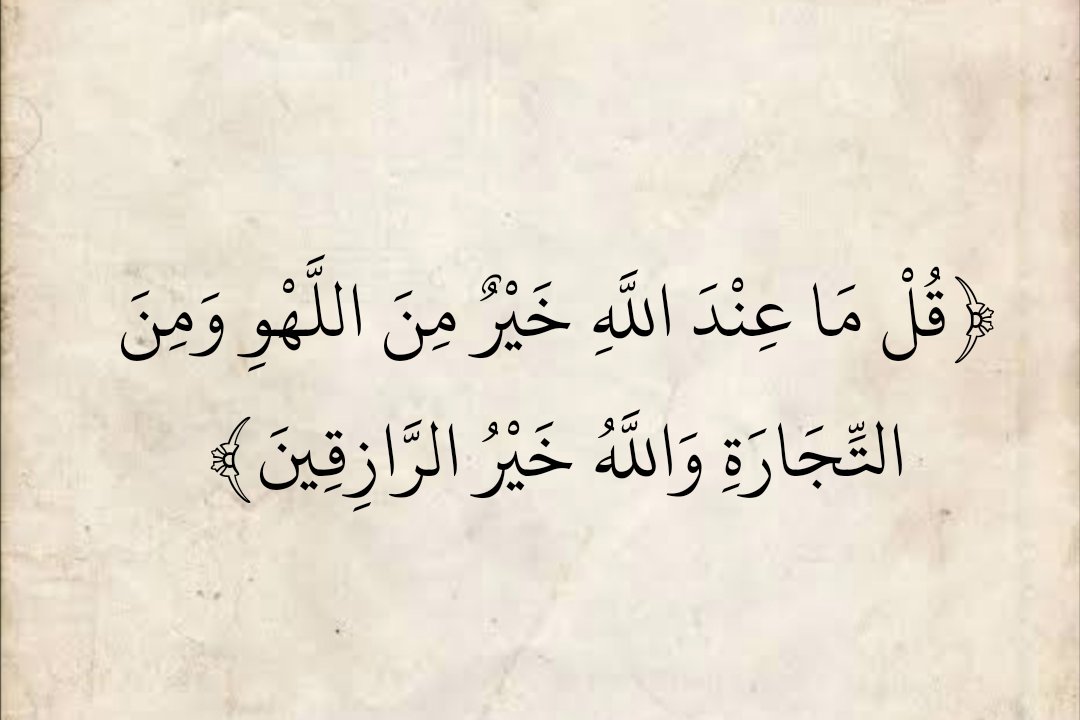 ﴿قُلْ مَا عِنْدَ اللَّهِ خَيْرٌ مِنَ اللَّهْوِ وَمِنَ
التِّجَارَةِ وَاللَّهُ خَيْرُ الرَّازِقِينَ﴾